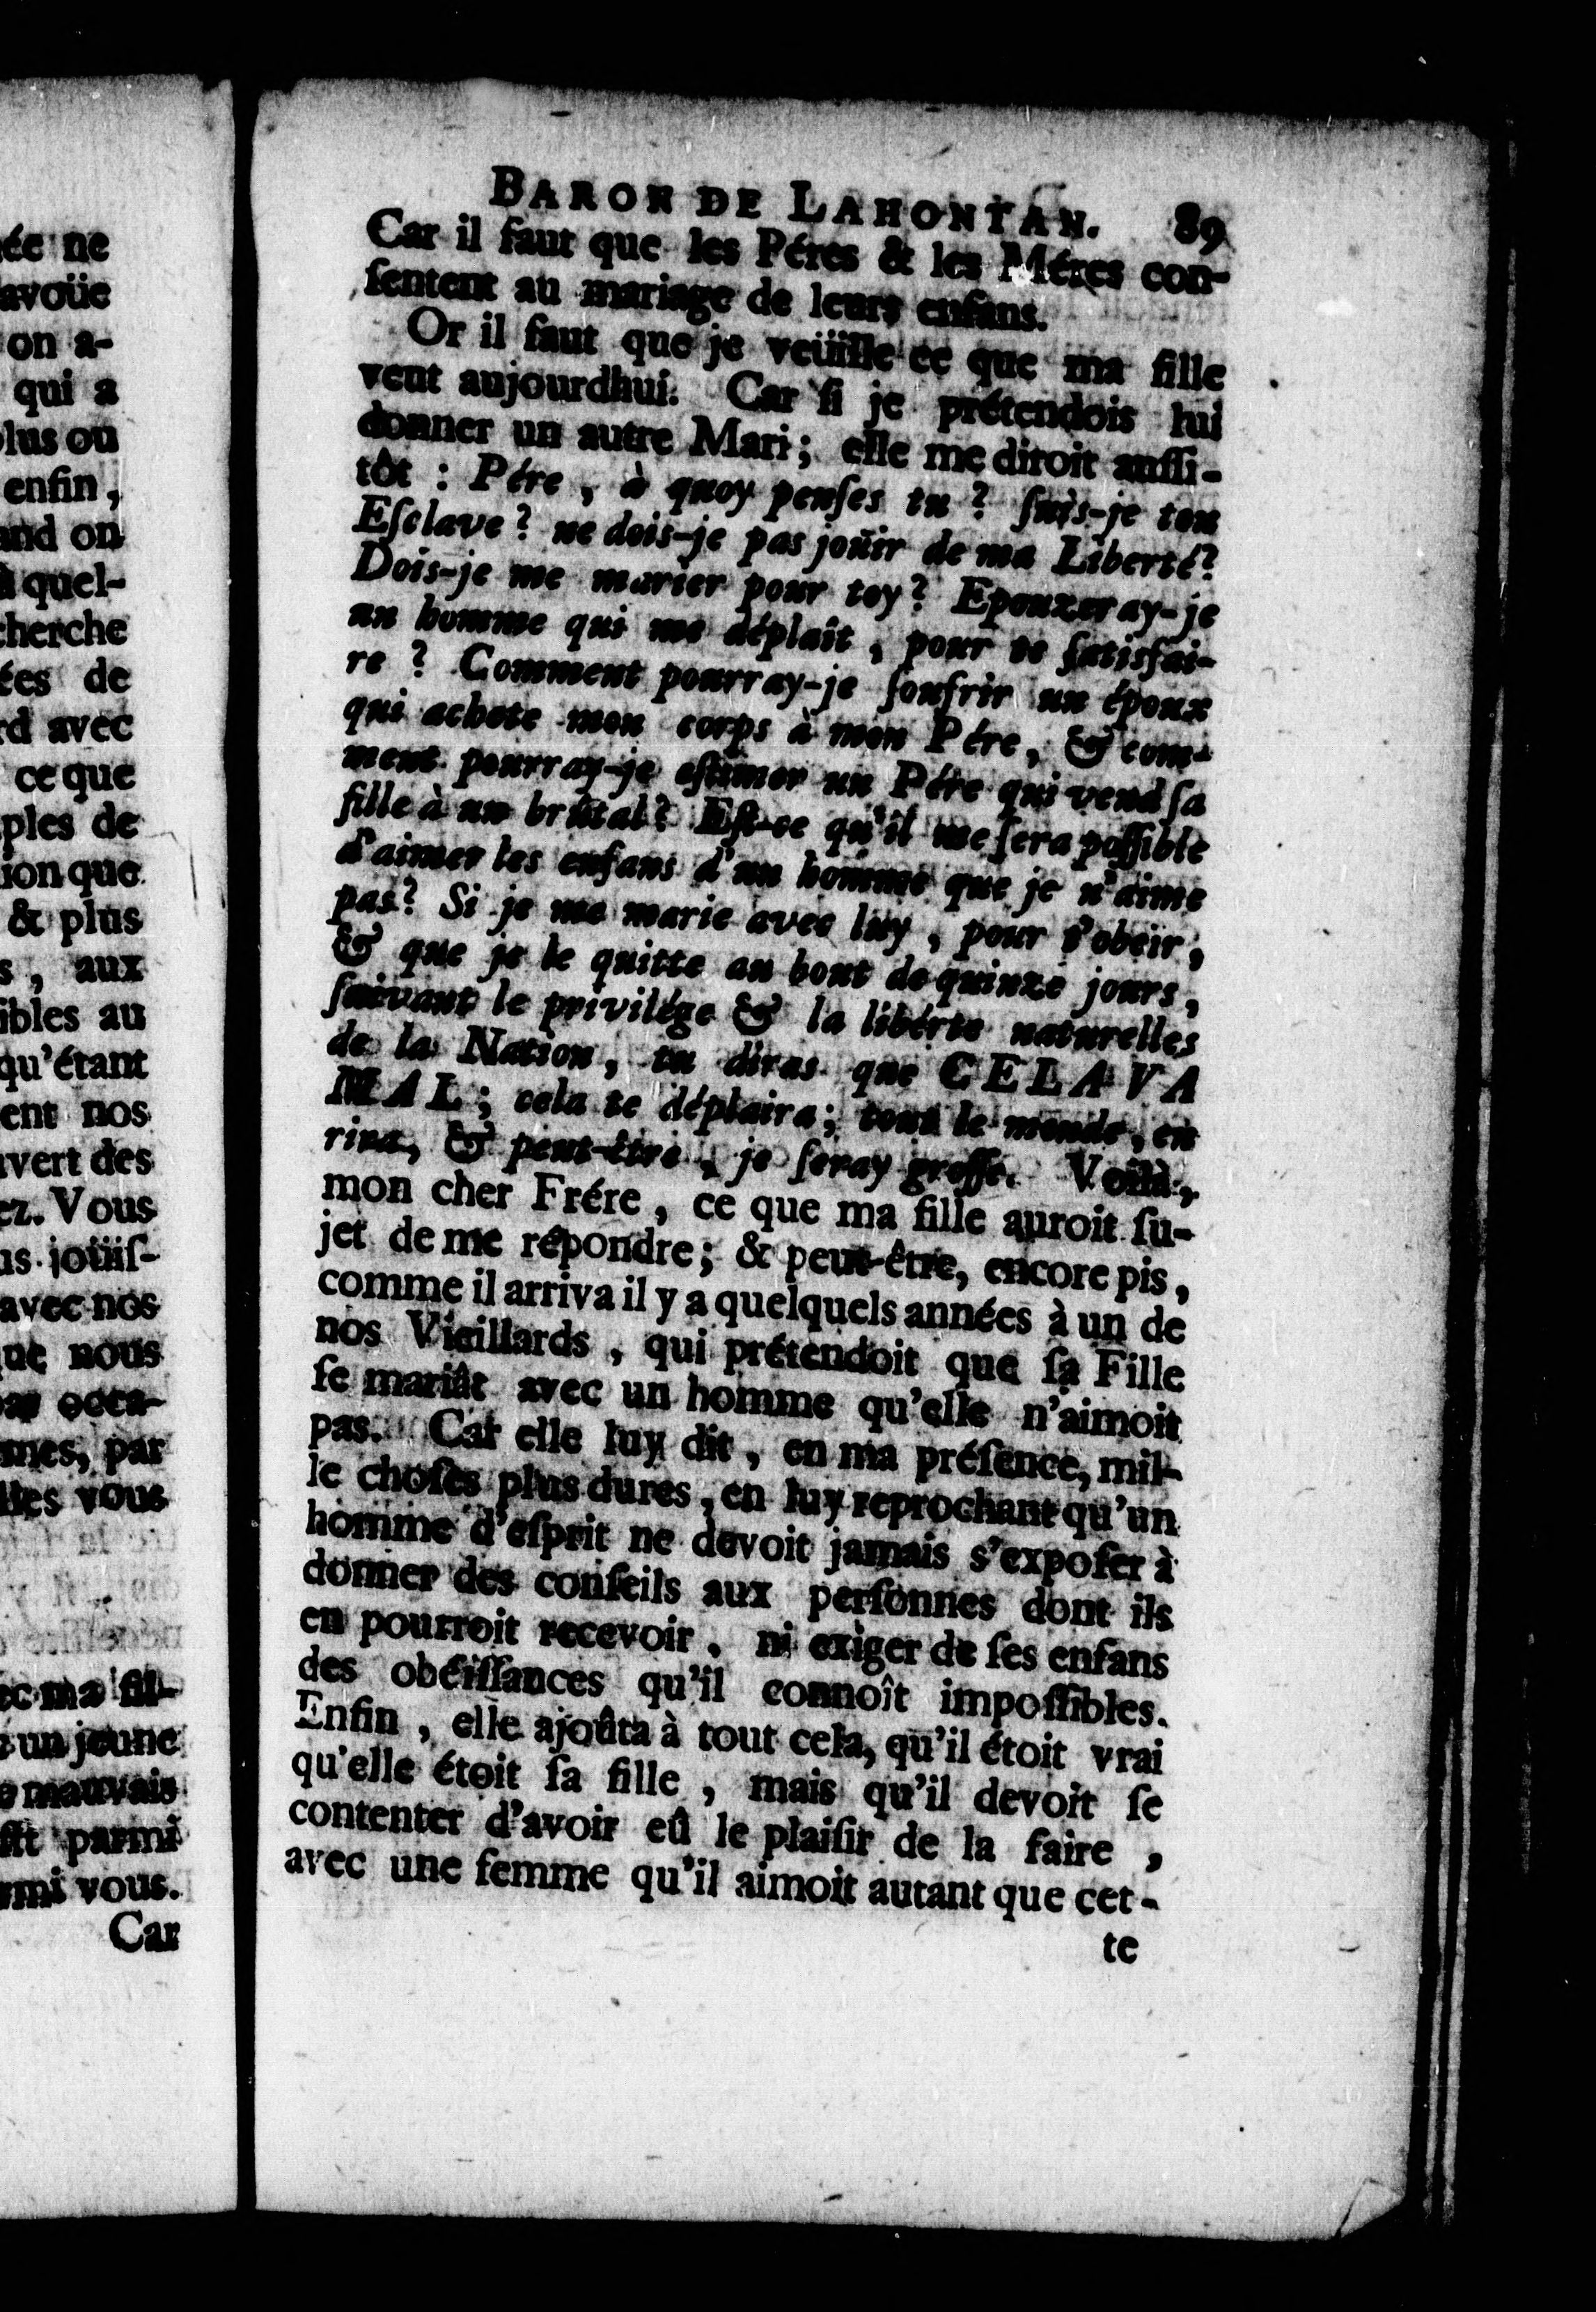 ée ne
avoüe
on a-
qui a
plus ou
enfin,
and on
à quel-
cherche
ées de
rd avec
ce que
ples de
ion que
& plus
s, aux
ibles au
qu'étant
ent nos
vert des
ez. Vous
us joüiſ-
avec nos
que nous
occa-
mes, par
lles vous
ec ma fil-
un jeune
mauvais
parmi
mi vous.
Car
BARON DE LAHONTAN. 89
Car il faut que les Péres & les Méres con-
ſentent au mariage de leurs enfans.
Or il faut que je veüille ce que ma fille
veut aujourdhui. Car ſi je prétendois lui
donner un autre Mari; elle me diroit auſſi-
tôt : Pére, à quoy penſes tu ? ſuis-je ton
Eſclave ? ne dois-je pas joüir de ma Liberté ?
Dois-je me marier pour toy ? Epouzeray-je
un homme qui me déplaît, pour te ſatisfai-
re ? Comment pourray-je ſoufrir un époux
qui achete mon corps à mon Pére, & com-
ment pourray-je eſtimer un Pére qui vend ſa
fille à un brûtal ? Eſt-ce qu'il me ſera poſſible
d'aimer les enfans d'un homme que je n'aime
pas ? Si je me marie avec luy, pour t'obeir,
& que je le quitte au bout de quinze jours,
ſuivant le privilége & la libérte naturelles
de la Nation, tu diras que CELA VA
MAL; cela te déplaira; tout le monde, en
rira, & peut-être, je ſeray groſſe. Voilà,
mon cher Frére, ce que ma fille auroit ſu-
jet de me répondre; & peut-être, encore pis,
comme il arriva il y a quelquels années à un de
nos Vieillards, qui prétendoit que ſa Fille
ſe mariât avec un homme qu'elle n'aimoit
pas. Car elle luy dit, en ma préſence, mil-
le choſes plus dures, en luy reprochant qu'un
homme d'eſprit ne devoit jamais s'expoſer à
donner des conſeils aux perſonnes dont ils
en pourroit recevoir, ni exiger de ſes enfans
des obéiſſances qu'il connoît impoſſibles.
Enfin, elle ajoûta à tout cela, qu'il étoit vrai
qu'elle étoit ſa fille, mais qu'il devoit ſe
contenter d'avoir eû le plaiſir de la faire,
avec une femme qu'il aimoit autant que cet-
te